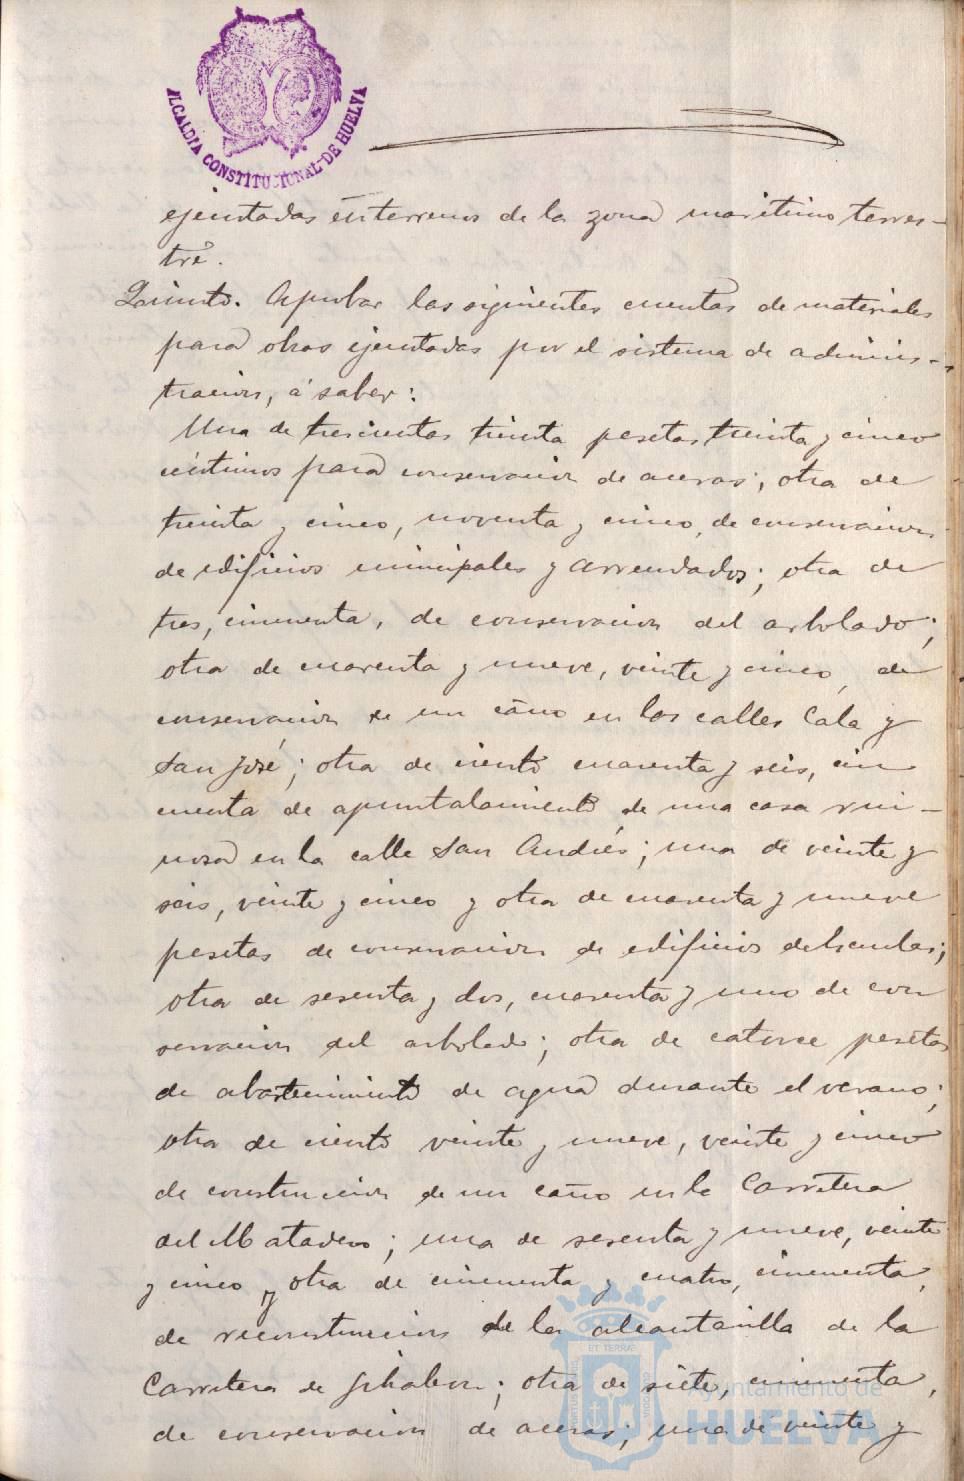 ALCALDIA CONSTITUCIONAL DE HUELVA
ejecutadas en terrenos de la zona maritimo terres-
tre.
Quinto. Aprobar las siguientes cuentas de materiales
para obras ejecutadas por el sistema de adminis-
tracion, á saber:
Una de trescientas treinta pesetas treinta y cinco
céntimos para conservacion de aceras; otra de
treinta y cinco, noventa y cinco, de conservacion
de edificios municipales y arrendados; otra de
tres, cincuenta, de conservacion del arbolado;
otra de cuarenta y nueve, veinte y cinco, de
conservacion de un caño en las calles Cala y
San José; otra de ciento cuarenta y seis, cin
cuenta de apuntalamiento de una casa rui-
nosa en la calle San Andrés; una de veinte y
seis, veinte y cinco y otra de cuarenta y nueve
pesetas de conservacion de edificios de Escuelas;
otra de sesenta y dos, cuarenta y uno de con
servacion del arbolado; otra de catorce pesetas
de abastecimiento de agua durante el verano;
otra de ciento veinte y nueve, veinte y cinco
de construccion de un caño en la Carretera
del Matadero; una de sesenta y nueve, veinte
y cinco y otra de cincuenta y cuatro, cincuenta,
de reconstruccion de la alcantarilla de la
Carretera de Gibraleon; otra de siete, cincuenta,
de conservacion de aceras; una de veinte y
Ayuntamiento de
HUELVA